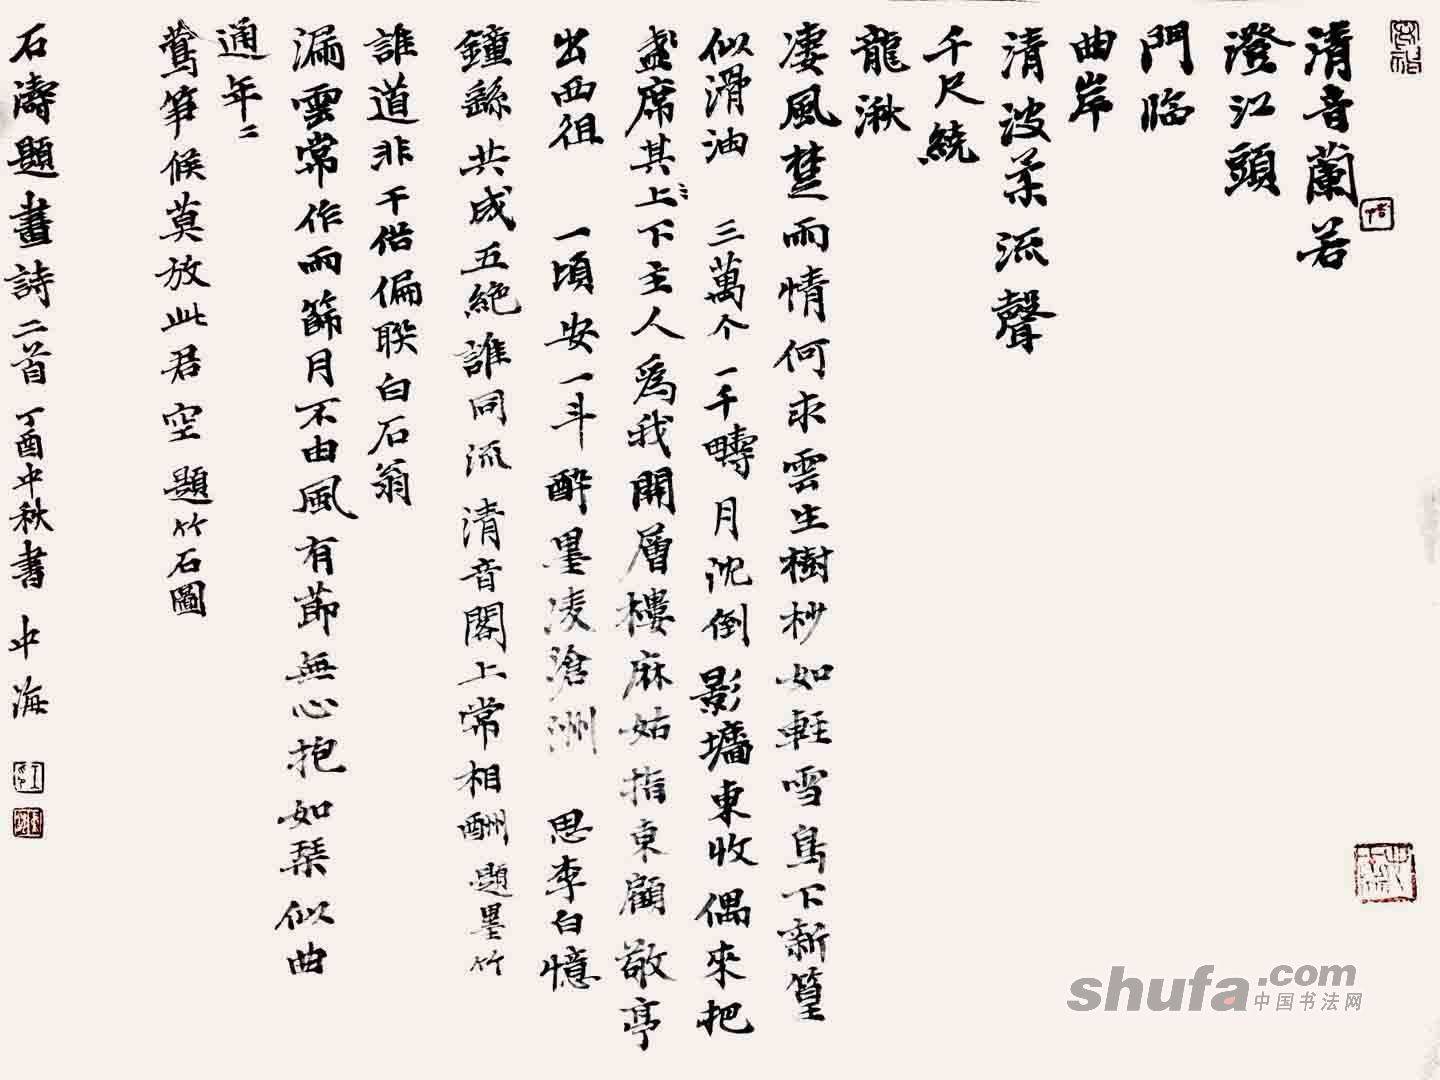 清音蘭若
澄江頭
門臨
曲岸
清波柔流聲
千尺繞
龍湫
淒風楚雨情何求雲生樹杪如輕雪鳥下新篁
似滑油 三萬个一千疇月沈倒影墻東收偶來把
盞席其上下主人爲我開層樓麻姑指東顧敬亭
出西徂 一頃安一斗醉墨凌滄洲 思李白憶
鐘繇共成五絕誰同流 清音閣上常相酬 題墨竹
誰道非千偕偏聯白石翁
漏雲常作雨篩月不由風有節無心抱如琴似曲
通年二
鶯筍候莫放此君空 題竹石圖
石濤題畫詩二首 丁酉中秋書 中海
shufa.com
中国书法网